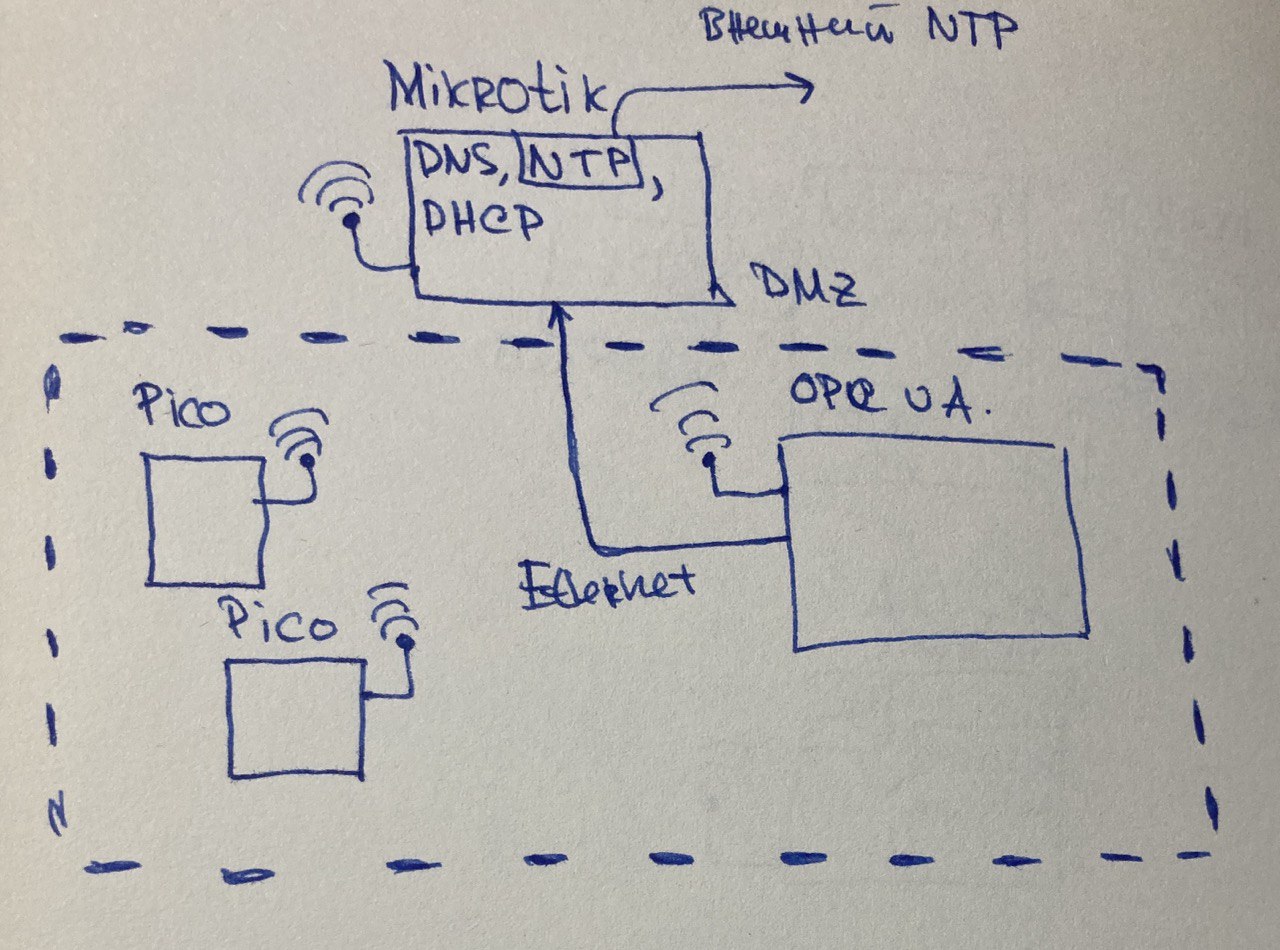 Внешний NTP
Mikrotik
DNS, NTP,
DHCP
DMZ
Pico
OPC UA.
Ethernet
Pico